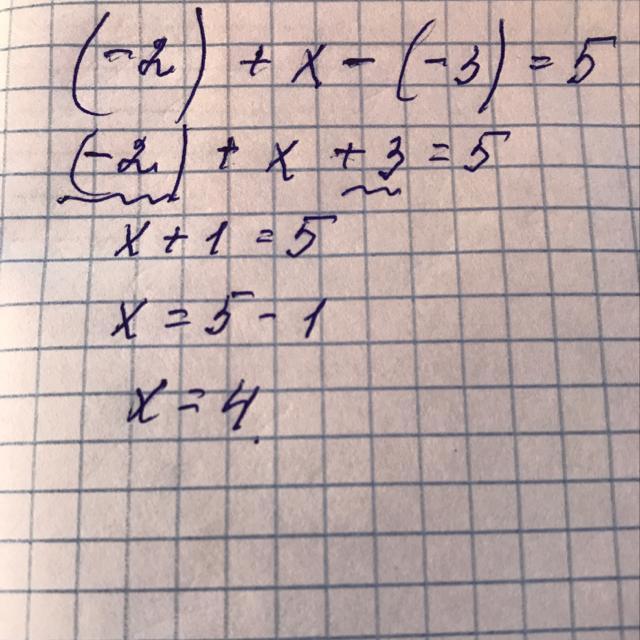 (-2) + x - (-3) = 5
(-2) + x + 3 = 5
x + 1 = 5
x = 5 - 1
x = 4.